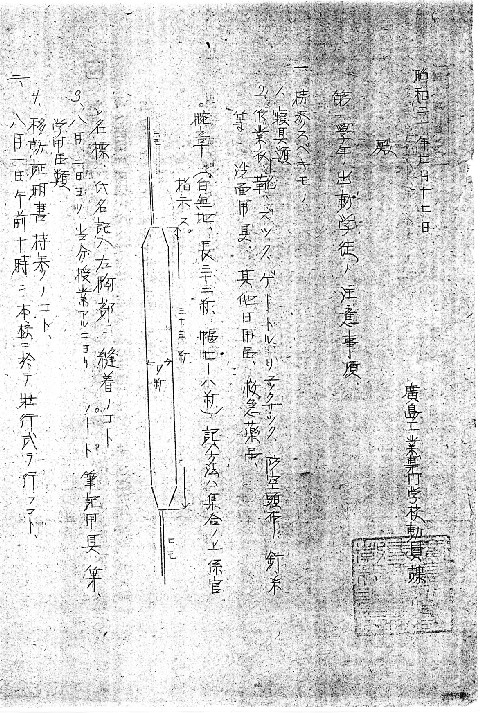 昭和二十年七月十七日
廣島工業専門学校動員課
殿
第一学年出動学徒ノ注意事項
一、持参スベキモノ
1、寝具類
2、作業衣、靴、ズック、ゲートル、リュックサック、防空頭巾、針糸
洗面用具、其他日用品、救急薬品
腕章(白無地、長三十三糎、幅七—八糎)記入方法ハ集合ノ上係官
指示ス
ヒモ
三十三糎
八糎
ヒモ
名標(氏名記入)左胸部ニ縫着ノコト
3、八月一日ヨリ当分授業アルニヨリノート、筆記用具、筆、
学用品類
4、移動証明書持参ノコト、
二、八月一日午前十時ニ本校ニ於テ壮行式ヲ行フコト、